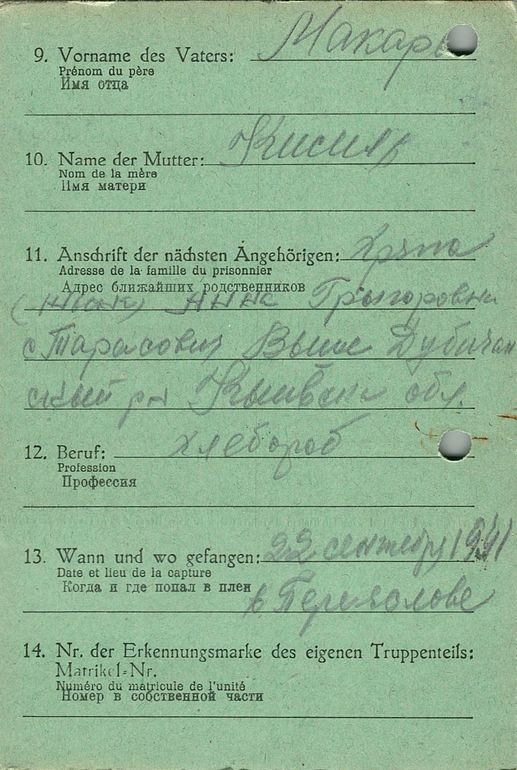 9. Vorname des Vaters: Макар
Prénom du père
Имя отца
10. Name der Mutter: Кисиль
Nom de la mère
Имя матери
11. Anschrift der nächsten Angehörigen:
Adresse de la famille du prisonnier
Адрес ближайших родственников
Анна Григоровна
с Тарасович Выше Дубичан
ский р н Кыивска обл.
12. Beruf: хлебороб
Profession
Профессия
13. Wann und wo gefangen: 22 сентябру 1941
Date et lieu de la capture
Когда и где попал в плен в
14. Nr. der Erkennungsmarke des eigenen Truppenteils:
Matrikel-Nr.
Numéro du matricule de l'unité
Номер в собственной части